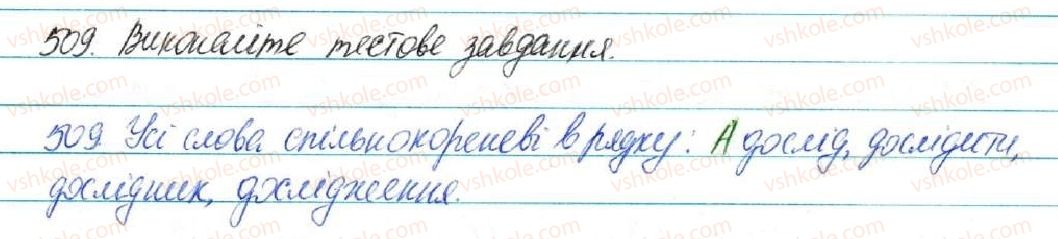 509. Виконайте тестове завдання.
509 Усі слова спільнокореневі в рядку: А дослід, дослідити,
дослідник, дослідження.